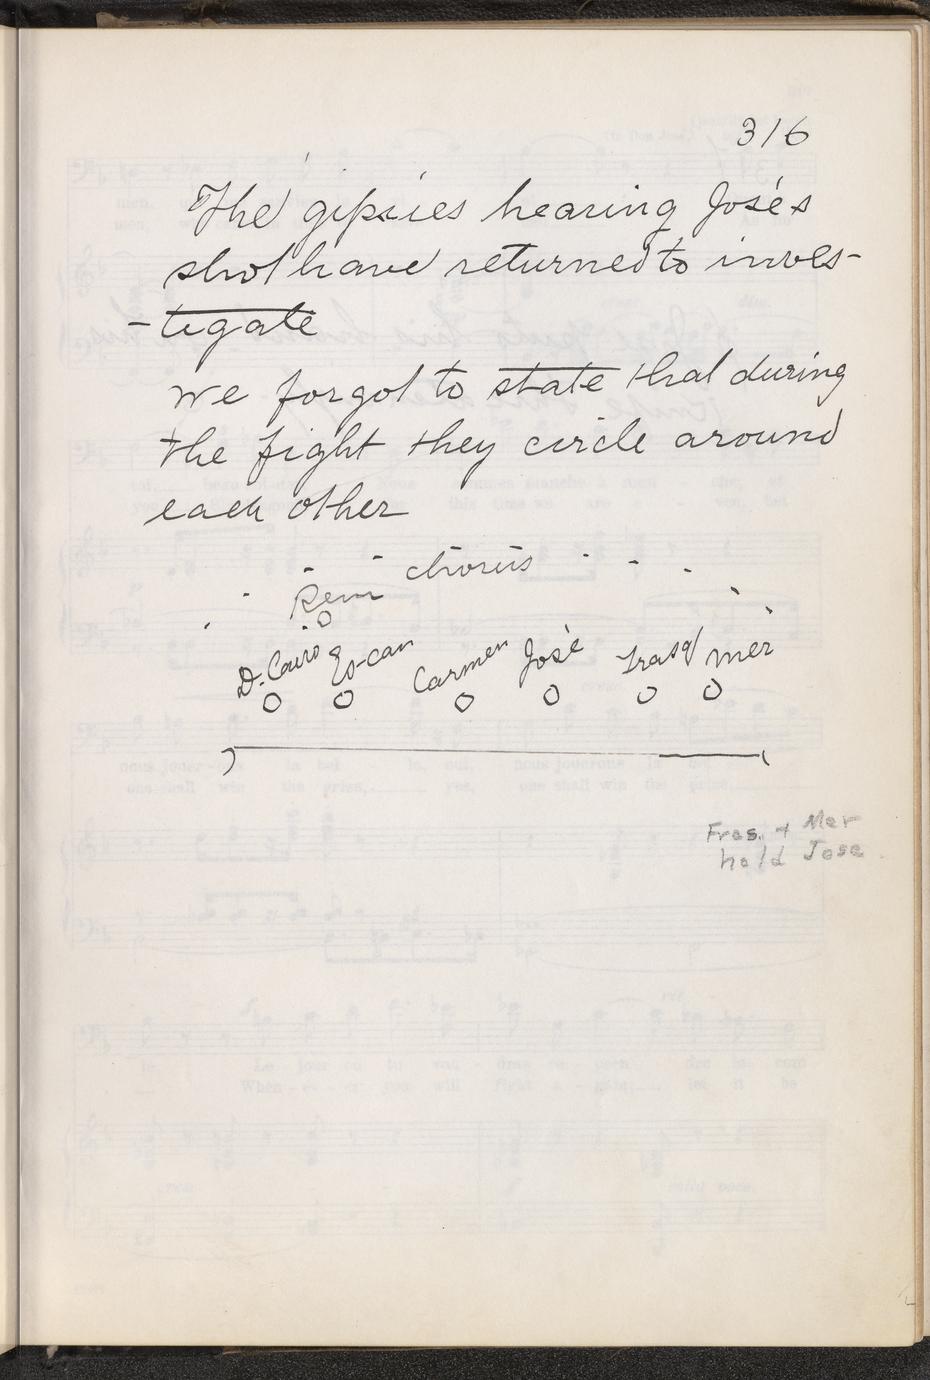 316
The gipsies hearing José's
shot have returned to inves-
-tigate
We forgot to state that during
the fight they circle around
each other
chorus
Rem
D. Cairo Es-cam Carmen José Frasq Mer
Fras. + Mer
hold Jose